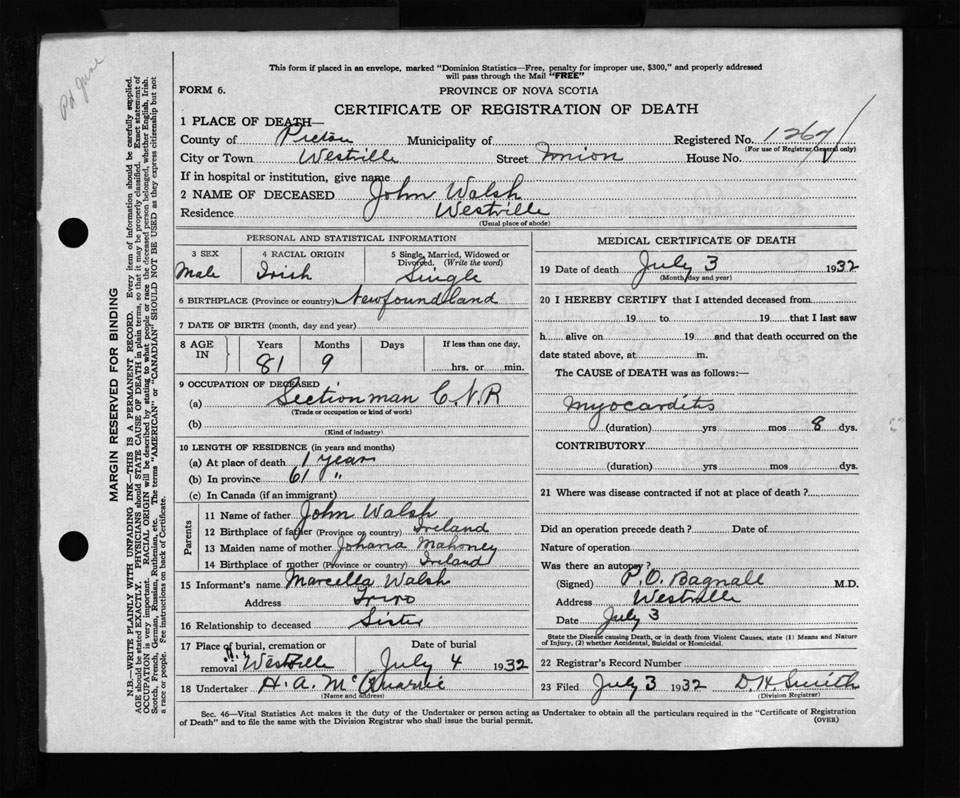 Pd June
This form if placed in an envelope, marked "Dominion Statistics—Free, penalty for improper use, $300," and properly addressed
will pass through the Mail "FREE"
FORM 6. PROVINCE OF NOVA SCOTIA
CERTIFICATE OF REGISTRATION OF DEATH
1 PLACE OF DEATH—
County of Pictou Municipality of Registered No. 1267
(For use of Registrar General only)
City or Town Westville Street Union House No.
If in hospital or institution, give name
2 NAME OF DECEASED John Walsh
Residence Westville
(Usual place of abode)
PERSONAL AND STATISTICAL INFORMATION
3 SEX 4 RACIAL ORIGIN 5 Single, Married, Widowed or
Divorced. (Write the word)
Male Irish Single
6 BIRTHPLACE (Province or country) Newfoundland
7 DATE OF BIRTH (month, day and year)
8 AGE IN Years Months Days If less than one day,
81 9 hrs. or min.
9 OCCUPATION OF DECEASED
(a) Sectionman C.N.R
(Trade or occupation or kind of work)
(b)
(Kind of industry)
10 LENGTH OF RESIDENCE (in years and months)
(a) At place of death 1 year
(b) In province 61 "
(c) In Canada (if an immigrant)
Parents
11 Name of father John Walsh
12 Birthplace of father (Province or country) Ireland
13 Maiden name of mother Johana Mahoney
14 Birthplace of mother (Province or country) Ireland
15 Informant's name Marcella Walsh
Address
16 Relationship to deceased Sister
17 Place of burial, cremation or Date of burial
removal Westville July 4 1932
18 Undertaker H. A. McQuarrie
(Name and address)
MEDICAL CERTIFICATE OF DEATH
19 Date of death July 3 1932
(Month, day and year)
20 I HEREBY CERTIFY that I attended deceased from
19 to 19 that I last saw
h alive on 19 and that death occurred on the
date stated above, at m.
The CAUSE of DEATH was as follows:—
Myocarditis
(duration) yrs mos 8 dys.
CONTRIBUTORY
(duration) yrs mos dys.
21 Where was disease contracted if not at place of death?
Did an operation precede death? Date of
Nature of operation
Was there an autopsy?
(Signed) P. O. Bagnall M.D.
Address Westville
Date July 3
State the Disease causing Death, or in death from Violent Causes, state (1) Means and Nature
of Injury, (2) whether Accidental, Suicidal or Homicidal.
22 Registrar's Record Number
23 Filed July 3 1932 D. H. Smith
(Division Registrar)
Sec. 46—Vital Statistics Act makes it the duty of the Undertaker or person acting as Undertaker to obtain all the particulars required in the "Certificate of Registration
of Death" and to file the same with the Division Registrar who shall issue the burial permit. (OVER)
MARGIN RESERVED FOR BINDING
N.B.—WRITE PLAINLY WITH UNFADING INK—THIS IS A PERMANENT RECORD. Every item of information should be carefully supplied.
AGE should be stated EXACTLY. PHYSICIANS should STATE CAUSE OF DEATH in plain terms, so that it may be properly classified. Exact statement of
OCCUPATION is very important. RACIAL ORIGIN will be described by stating to what people or race the deceased person belonged, whether English, Irish,
Scotch, French, German, Russian, Ruthenian, etc. The terms "AMERICAN" or "CANADIAN" SHOULD NOT BE USED as they express citizenship but not
a race or people. Fee instructions on back of Certificate.